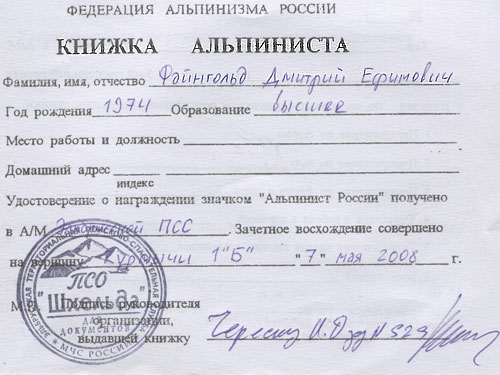 ФЕДЕРАЦИЯ АЛЬПИНИЗМА РОССИИ
КНИЖКА АЛЬПИНИСТА
Фамилия, имя, отчество Файнгольд Дмитрий Ефимович
Год рождения 1974 Образование высшее
Место работы и должность
Домашний адрес
индекс
Удостоверение о награждении значком "Альпинист России" получено
в А/М ПСС. Зачетное восхождение совершено
на вершину Курмычи 1"Б" "7" мая 2008 г.
ПСО
"Шхельда"
ДЛЯ
ДОКУМЕНТОВ
МЧС РОССИИ
М.П. Подпись руководителя
организации,
выдавшей книжку